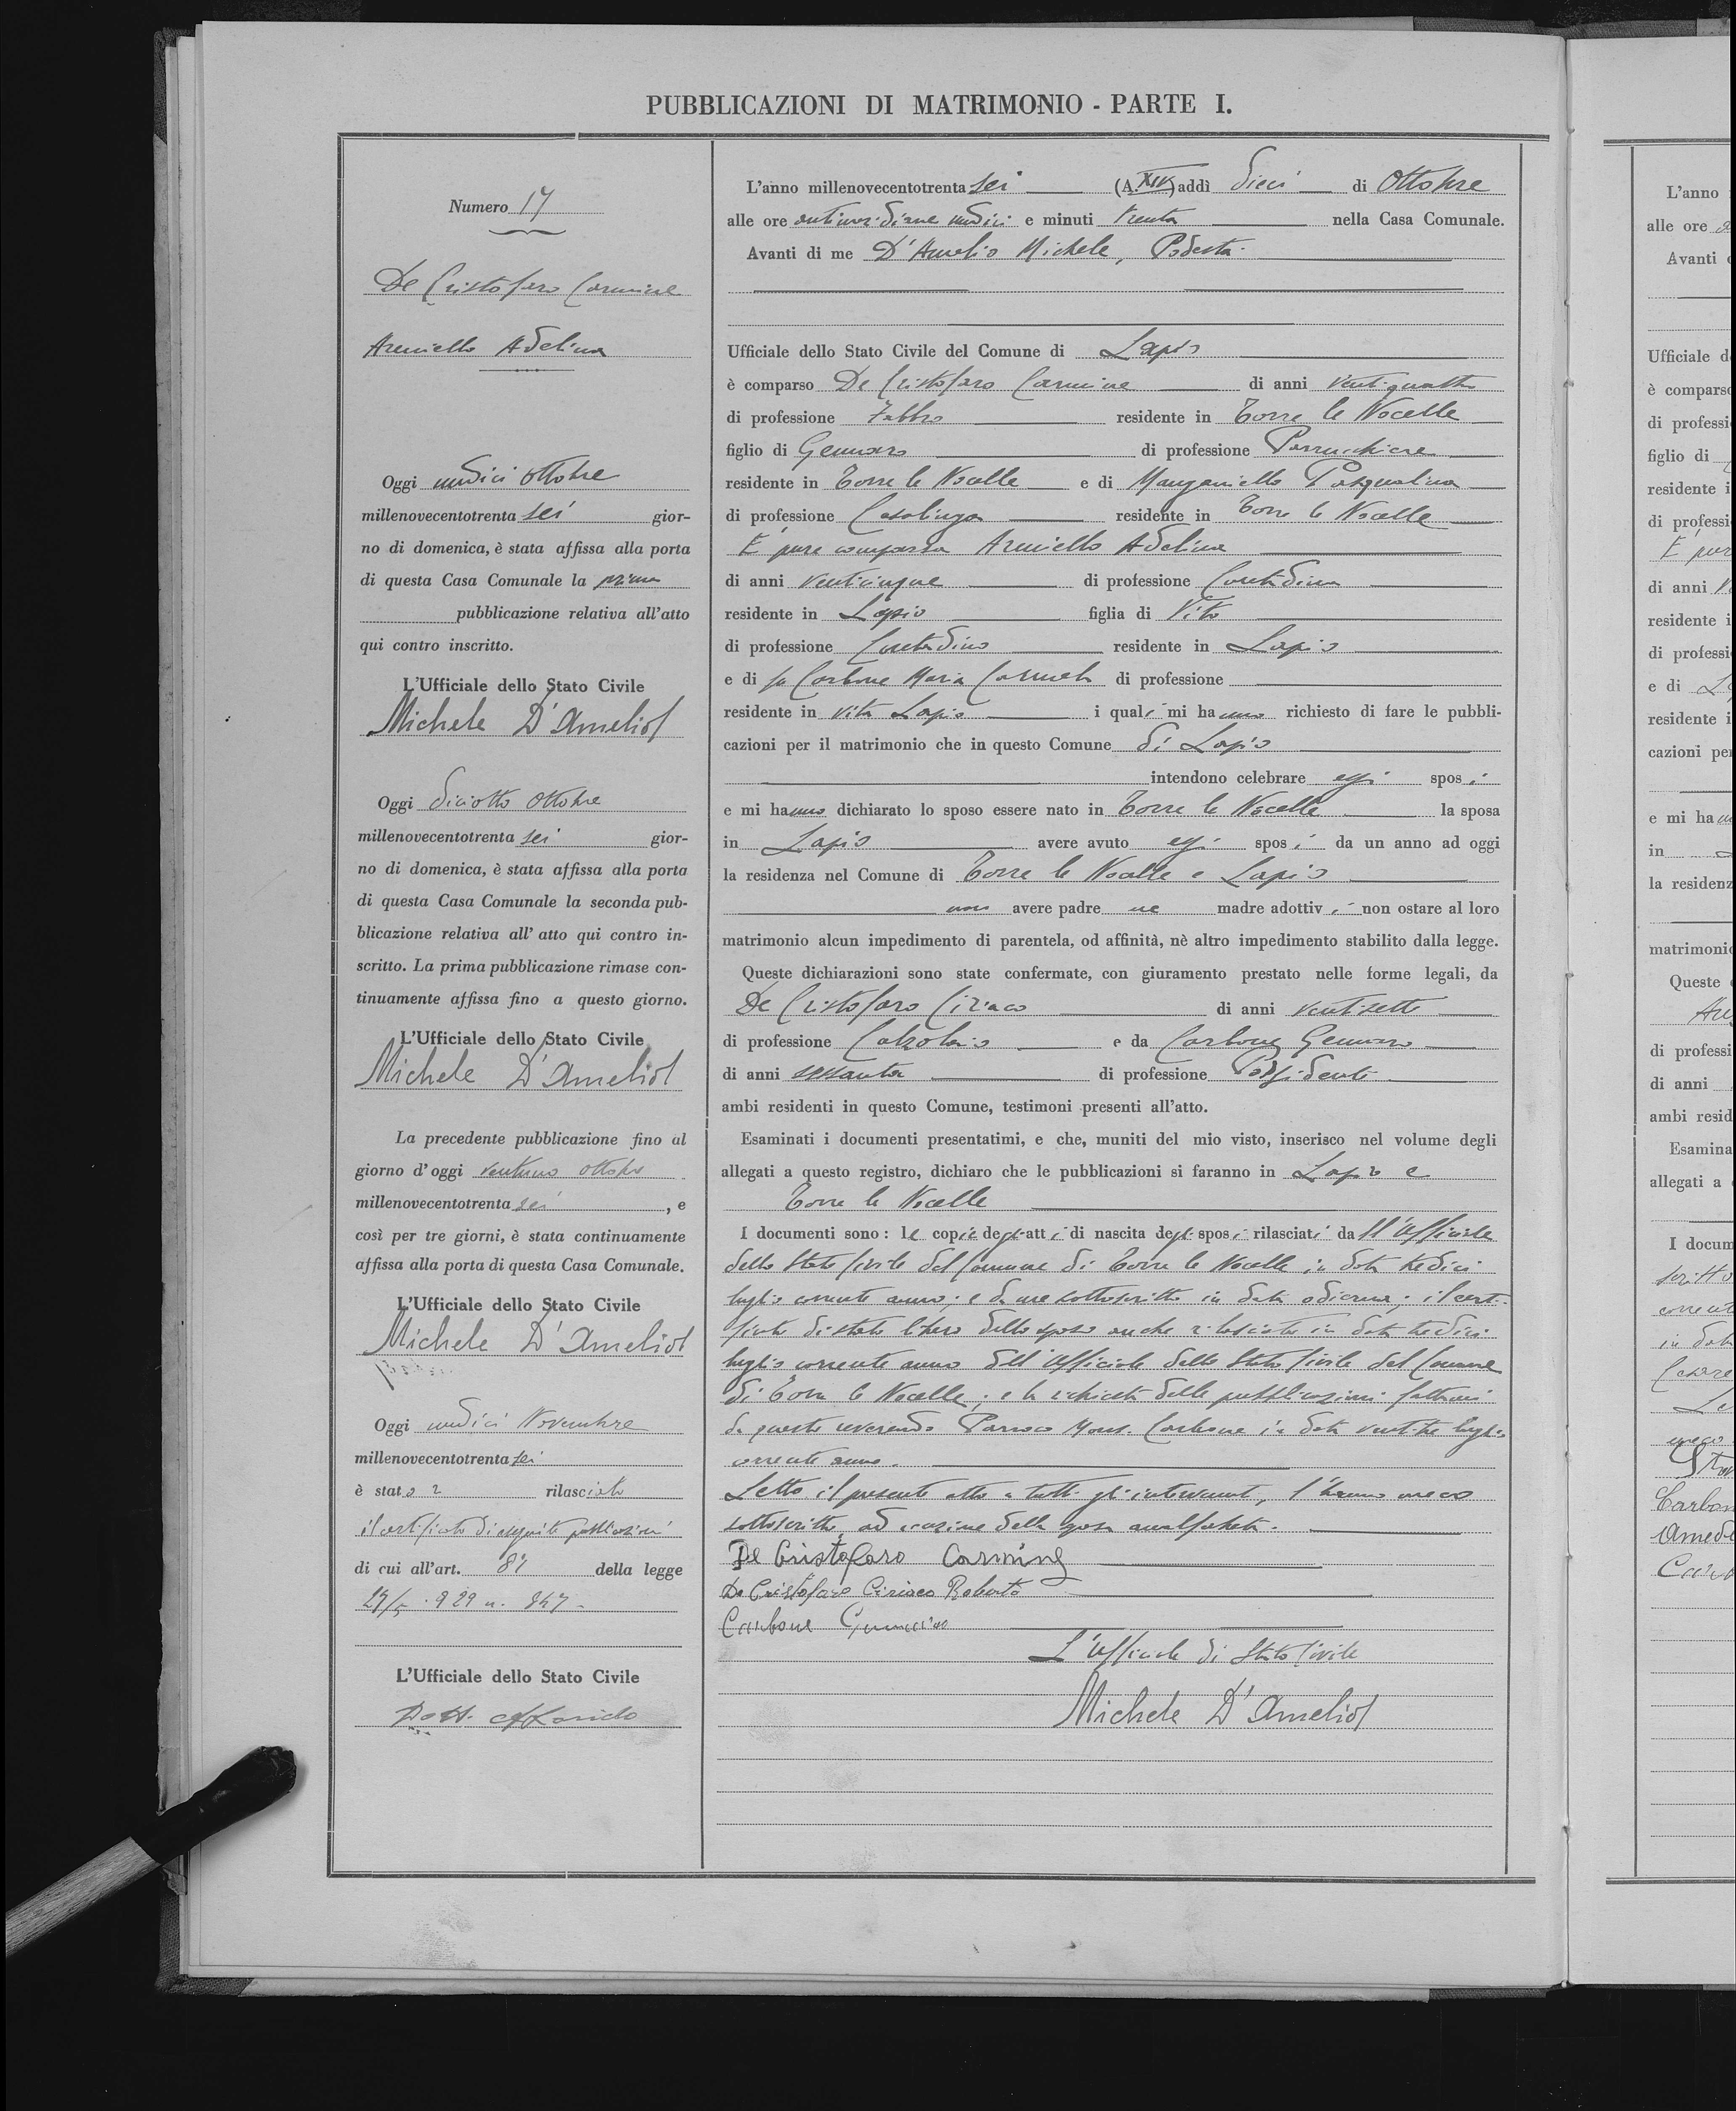 PUBBLICAZIONI DI MATRIMONIO - PARTE I.
Numero 17
De Cristofaro Carmine
Areniello Adelina
Oggi undici Ottobre
millenovecentotrenta sei gior-
no di domenica, è stata affissa alla porta
di questa Casa Comunale la prima
pubblicazione relativa all'atto
qui contro inscritto.
L'Ufficiale dello Stato Civile
Michele D'Amelio
Oggi diciotto Ottobre
millenovecentotrenta sei gior-
no di domenica, è stata affissa alla porta
di questa Casa Comunale la seconda pub-
blicazione relativa all'atto qui contro in-
scritto. La prima pubblicazione rimase con-
tinuamente affissa fino a questo giorno.
L'Ufficiale dello Stato Civile
Michele D'Amelio
La precedente pubblicazione fino al
giorno d'oggi ventuno ottobre
millenovecentotrenta sei, e
così per tre giorni, è stata continuamente
affissa alla porta di questa Casa Comunale.
L'Ufficiale dello Stato Civile
Michele D'Amelio
Oggi undici Novembre
millenovecentotrenta sei
è stato rilasciato
il certificato di eseguite pubblicazioni
di cui all'art. della legge
929 n. 847
L'Ufficiale dello Stato Civile
L'anno millenovecentotrenta sei (A. XIV) addì dieci di Ottobre
alle ore antimeridiane undici e minuti trenta nella Casa Comunale.
Avanti di me D'Amelio Michele, Podestà
Ufficiale dello Stato Civile del Comune di Lapio
è comparso De Cristofaro Carmine di anni ventiquattro
di professione Fabbro residente in Torre le Nocelle
figlio di Gennaro di professione Parrucchiere
residente in Torre le Nocelle e di Manganiello Pasqualina
di professione Casalinga residente in Torre le Nocelle
È pure comparsa Areniello Adelina
di anni venticinque di professione Contadina
residente in Lapio figlia di Vito
di professione Contadino residente in Lapio
e di fu Carbone Maria Carmela di professione
residente in vita Lapio i quali mi hanno richiesto di fare le pubbli-
cazioni per il matrimonio che in questo Comune di Lapio
intendono celebrare essi sposi
e mi hanno dichiarato lo sposo essere nato in Torre le Nocelle la sposa
in Lapio avere avuto essi sposi da un anno ad oggi
la residenza nel Comune di Torre le Nocelle e Lapio
non avere padre ne madre adottivi non ostare al loro
matrimonio alcun impedimento di parentela, od affinità, nè altro impedimento stabilito dalla legge.
Queste dichiarazioni sono state confermate, con giuramento prestato nelle forme legali, da
De Cristofaro Ciriaco di anni ventisette
di professione Calzolaio e da Carbone Gennaro
di anni sessanta di professione Possidente
ambi residenti in questo Comune, testimoni presenti all'atto.
Esaminati i documenti presentatimi, e che, muniti del mio visto, inserisco nel volume degli
allegati a questo registro, dichiaro che le pubblicazioni si faranno in Lapio e
Torre le Nocelle
I documenti sono: le copie degli atti di nascita degli sposi rilasciati da ll'Ufficiale
dello Stato Civile del Comune di Torre le Nocelle in data tredici
luglio corrente anno; e da me sottoscritto in data odierna; il certi-
ficato di stato libero dello sposo anche rilasciato in data tredici
luglio corrente anno dall'Ufficiale dello Stato Civile del Comune
di Torre le Nocelle; e la richiesta delle pubblicazioni fattami
da questo reverendo Parroco Mons. Carbone in data ventitre luglio
corrente anno.
Letto il presente atto a tutti gli intervenuti, l'hanno meco
sottoscritto, ad eccezione della sposa analfabeta.
De Cristofaro Carmine
De Cristofaro Ciriaco Roberto
Carbone Gennarino
L'Ufficiale di Stato Civile
Michele D'Amelio
L'anno
alle ore
Avanti
Ufficiale d
è comparso
di professi
figlio di
residente i
di professi
È pur
di anni
residente i
di professi
e di
residente i
cazioni per
e mi ha
in
la residenz
matrimonio
Queste
di professi
di anni
ambi resid
Esamina
allegati a
I docum
corrent
in data